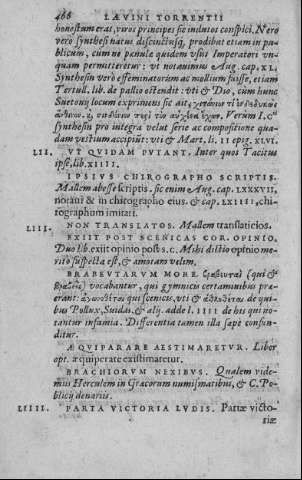 466 LÆVINI TORRENTII
honestum erat, viros principes sic inlutos conspici. Nero
verò synthesinatus discinctusq; prodibat etiam in pu-
blicum, cùm ne penulæ quidem usus Imperatori un-
quam permitteretur: ut notavimus Aug. cap. XL.
Synthesin verò effeminatorum ac mollium fuisse, etiam
Tertull. lib. de pallio ostendit: uti & Dio, cùm hunc
Suetonij locum exprimens sic ait,
Verum I. C.ti
synthesin pro integra velut serie ac compositione qua-
dam vestium accipiunt: uti & Mart. li. II epig. XLVI.
LII. VT QVIDAM PVTANT. Inter quos Tacitus
ipse, lib. XIIII.
IPSIVS CHIROGRAPHO SCRIPTIS.
Mallem abesse scriptis. sic enim Aug. cap. LXXXVII,
notavi & in chirographo eius, & cap. LXIIII, chi-
rographum imitari.
LIII. NON TRANSLATOS. Mallem translaticios.
EXIIT POST SCENICAS COR. OPINIO.
Duo lib. exiit opinio post s. c. Mihi dictio opinio me-
ritò suspecta est, & amotam velim.
BRABEVTARVM MORE. βραβευταὶ (qui &
βραβεῖς) vocabantur, qui gymnicis certaminibus præ-
erant: ἀγωνοθέται qui scenicis, uti & ἀθλοθέται de qui-
bus Pollux, Suidas, & alij. adde l. IIII de his qui no-
tantur infamia. Differentia tamen illa sæpe confun-
ditur.
ÆQVIPARARE ÆSTIMARETVR. Liber
opt. æquiperare existimaretur.
BRACHIORVM NEXIBVS. Qualem vide-
mus Herculem in Græcorum numismatibus, & C. Po-
blicij denariis.
LIIII. PARTA VICTORIA LVDIS. Partæ victo-
riæ